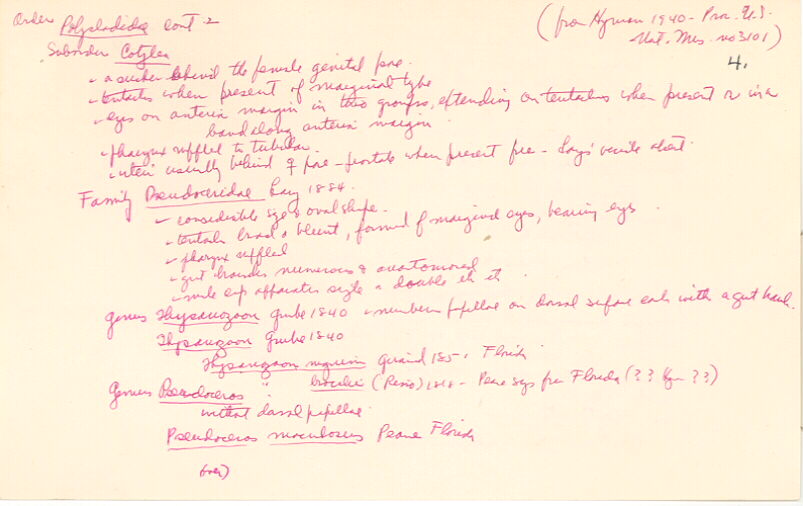 Order Polycladida cont. 2
(from Hyman 1940 - Proc. U.S.
Nat. Mus. no 3101)
4.
Suborder Cotylea
- a sucker behind the female genital pore.
- tentacles when present of marginal type
- eyes on anterior margin in two groups, extending on tentacles when present or in a
band along anterior margin.
- pharynx ruffled to tubular.
- uteri usually behind ♀ pore - prostate when present free - Lang's vesicle absent.
Family Pseudoceridae Lang 1884.
- considerable size & oval shape.
- tentacles broad & blunt, formed of marginal eyes, bearing eyes.
- pharynx ruffled
- gut branches numerous & anastomosed
- male cop apparatus single or double
genus Thysanozoon Grube 1840 - numerous papillae on dorsal surface each with a gut branch.
Thysanozoon Grube 1840
Thysanozoon nigrum Girard 1851 Florida
" brocchii (Risso) 1818 - Pearse says from Florida (?? ??)
Genus Pseudoceros
without dorsal papillae.
Pseudoceros maculosus Pearse Florida
(over)